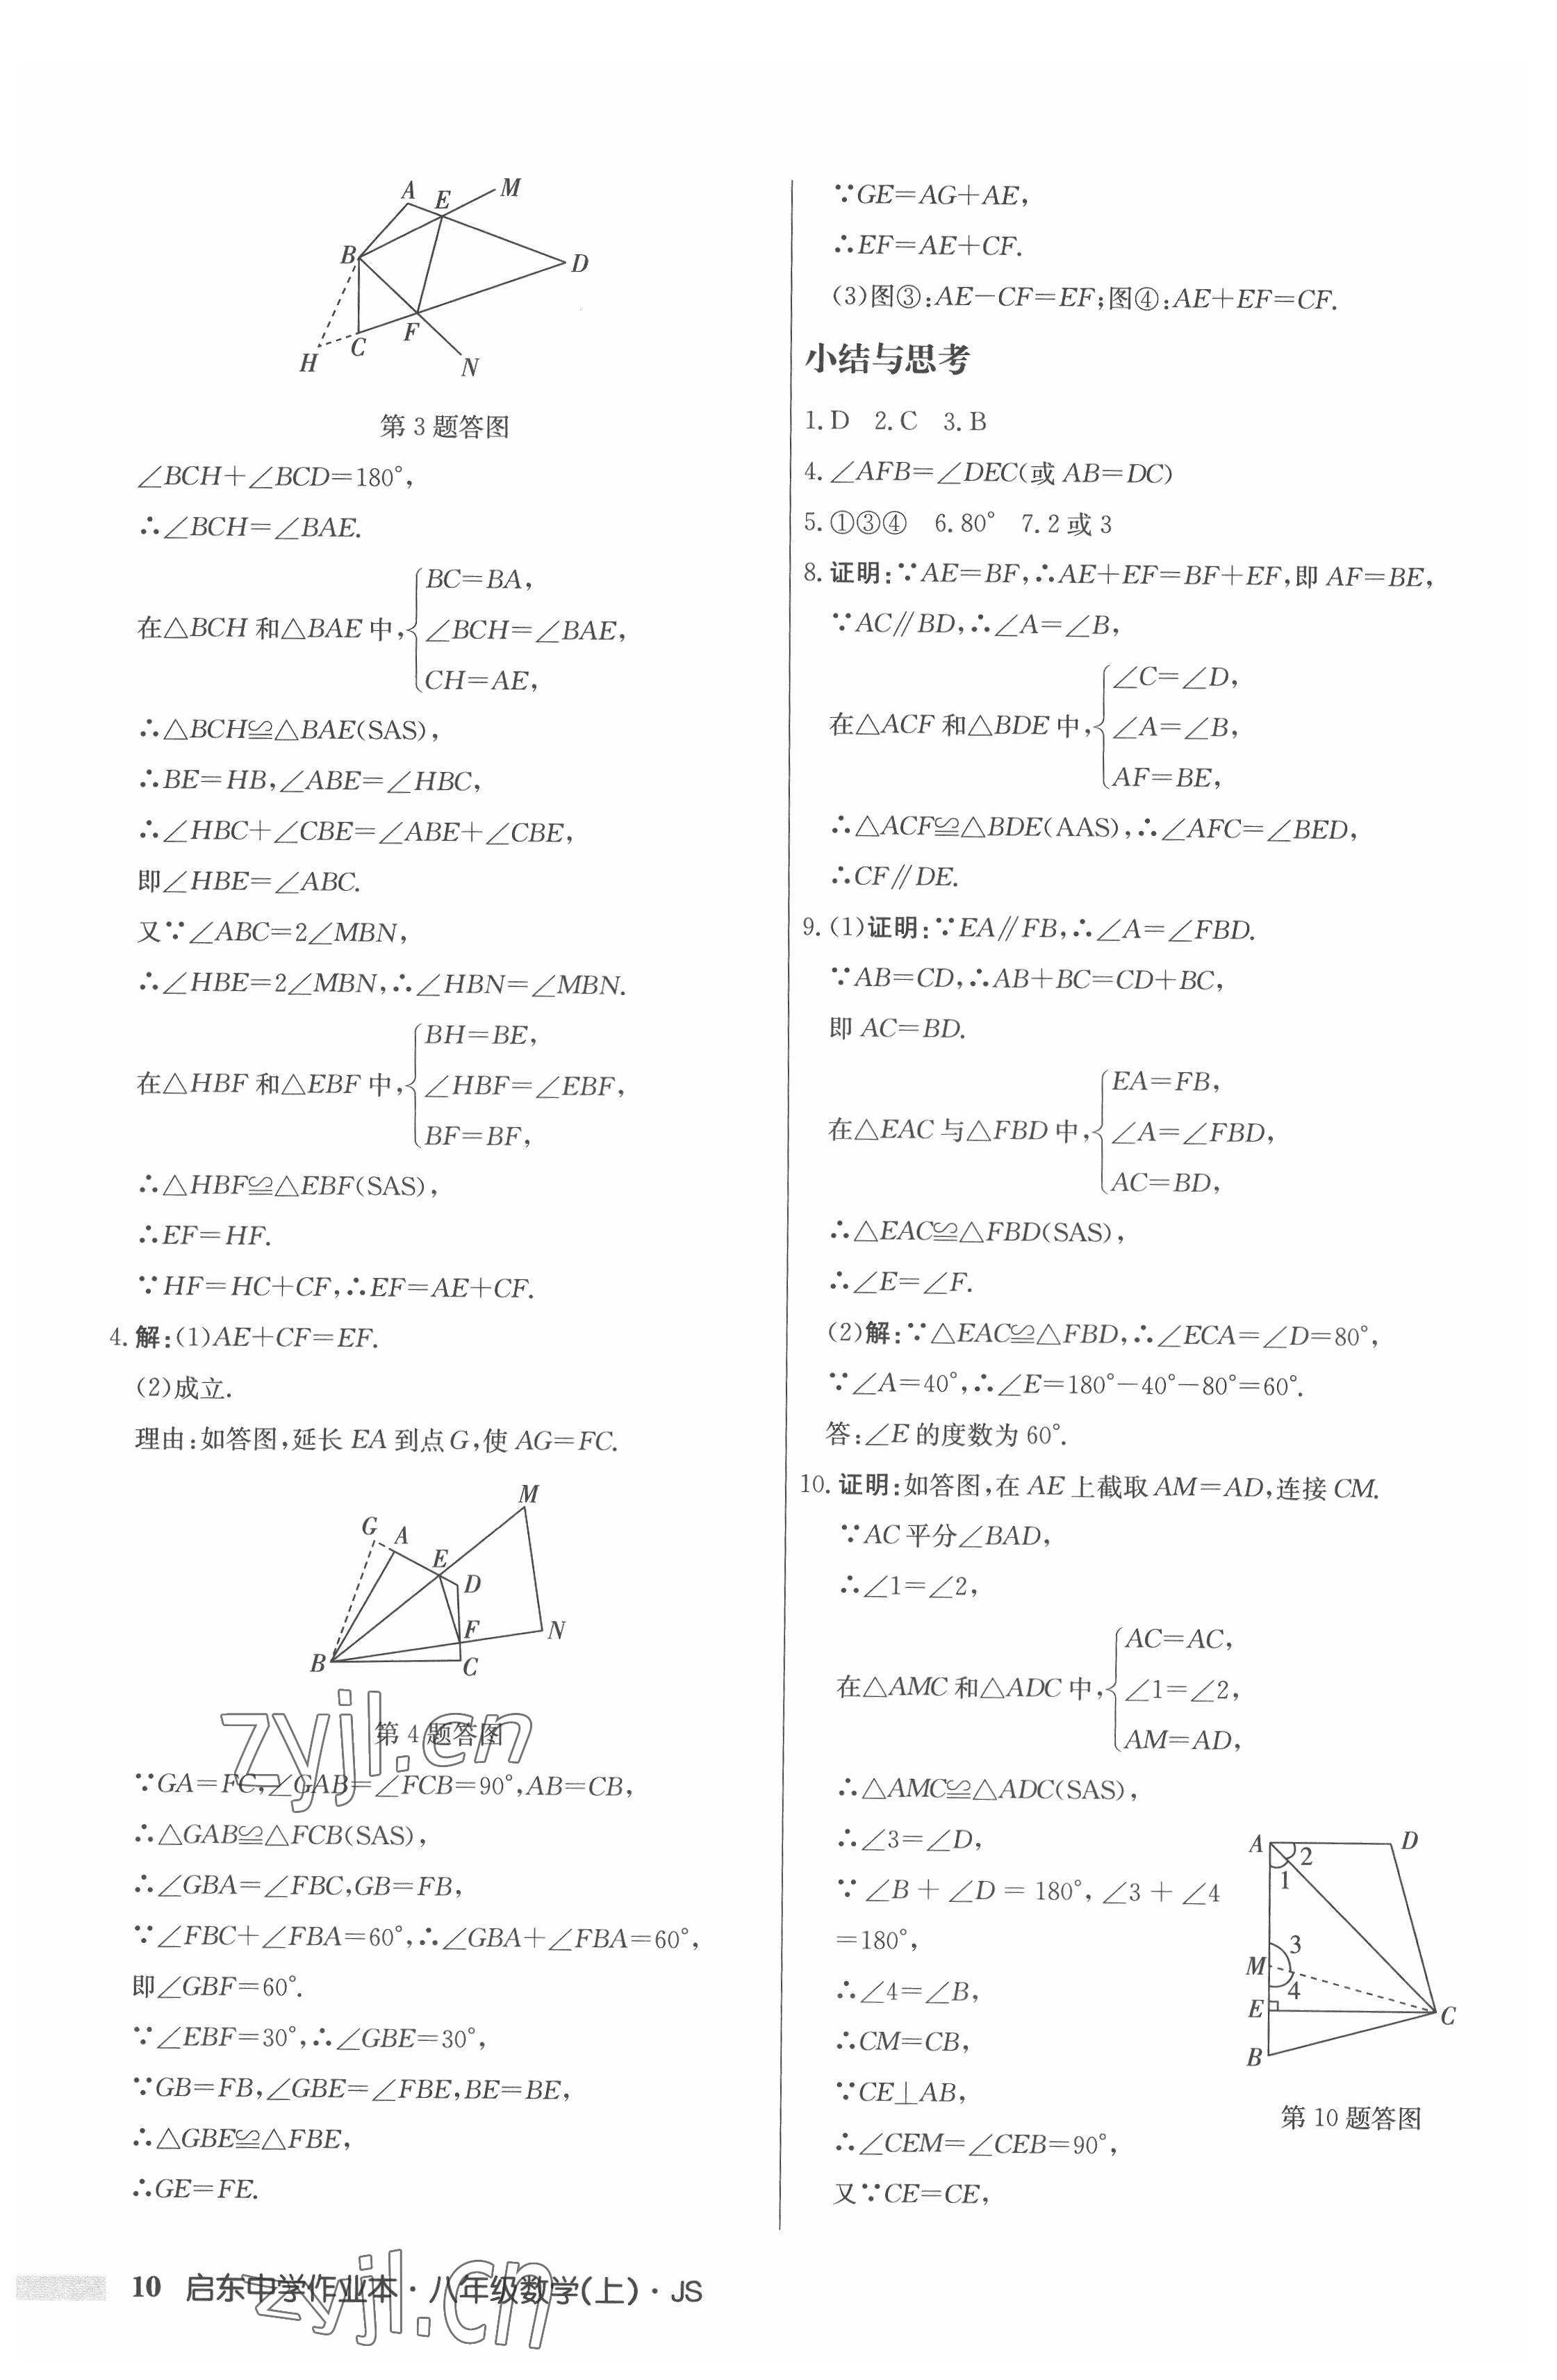 A E M
B D
H C F N
第 3 题答图
∠BCH+∠BCD=180°,
∴∠BCH=∠BAE.
BC=BA,
在△BCH 和△BAE 中, ∠BCH=∠BAE,
CH=AE,
∴△BCH≌△BAE(SAS),
∴BE=HB,∠ABE=∠HBC,
∴∠HBC+∠CBE=∠ABE+∠CBE,
即∠HBE=∠ABC.
又∵∠ABC=2∠MBN,
∴∠HBE=2∠MBN,∴∠HBN=∠MBN.
BH=BE,
在△HBF 和△EBF 中, ∠HBF=∠EBF,
BF=BF,
∴△HBF≌△EBF(SAS),
∴EF=HF.
∵HF=HC+CF,∴EF=AE+CF.
4. 解:(1)AE+CF=EF.
(2)成立.
理由:如答图,延长 EA 到点 G,使 AG=FC.
M
G A
E
D
F N
B C
第 4 题答图
zyjl.cn
∵GA=FC,∠GAB=∠FCB=90°,AB=CB,
∴△GAB≌△FCB(SAS),
∴∠GBA=∠FBC,GB=FB,
∵∠FBC+∠FBA=60°,∴∠GBA+∠FBA=60°,
即∠GBF=60°.
∵∠EBF=30°,∴∠GBE=30°,
∵GB=FB,∠GBE=∠FBE,BE=BE,
∴△GBE≌△FBE,
∴GE=FE.
∵GE=AG+AE,
∴EF=AE+CF.
(3)图③:AE−CF=EF;图④:AE+EF=CF.
小结与思考
1. D 2. C 3. B
4. ∠AFB=∠DEC(或 AB=DC)
5. ①③④ 6. 80° 7. 2 或 3
8. 证明:∵AE=BF,∴AE+EF=BF+EF,即 AF=BE,
∵AC∥BD,∴∠A=∠B,
∠C=∠D,
在△ACF 和△BDE 中, ∠A=∠B,
AF=BE,
∴△ACF≌△BDE(AAS),∴∠AFC=∠BED,
∴CF∥DE.
9. (1)证明:∵EA∥FB,∴∠A=∠FBD.
∵AB=CD,∴AB+BC=CD+BC,
即 AC=BD.
EA=FB,
在△EAC 与△FBD 中, ∠A=∠FBD,
AC=BD,
∴△EAC≌△FBD(SAS),
∴∠E=∠F.
(2)解:∵△EAC≌△FBD,∴∠ECA=∠D=80°,
∵∠A=40°,∴∠E=180°−40°−80°=60°.
答:∠E 的度数为 60°.
10. 证明:如答图,在 AE 上截取 AM=AD,连接 CM.
∵AC 平分∠BAD,
∴∠1=∠2,
AC=AC,
在△AMC 和△ADC 中, ∠1=∠2,
AM=AD,
∴△AMC≌△ADC(SAS),
∴∠3=∠D,
∵∠B+∠D=180°,∠3+∠4
=180°,
∴∠4=∠B,
∴CM=CB,
∵CE⊥AB,
∴∠CEM=∠CEB=90°,
又∵CE=CE,
A D
2
1
3
M
4
E C
B
第 10 题答图
10 启东中学作业本·八年级数学(上)·JS
zyjl.cn